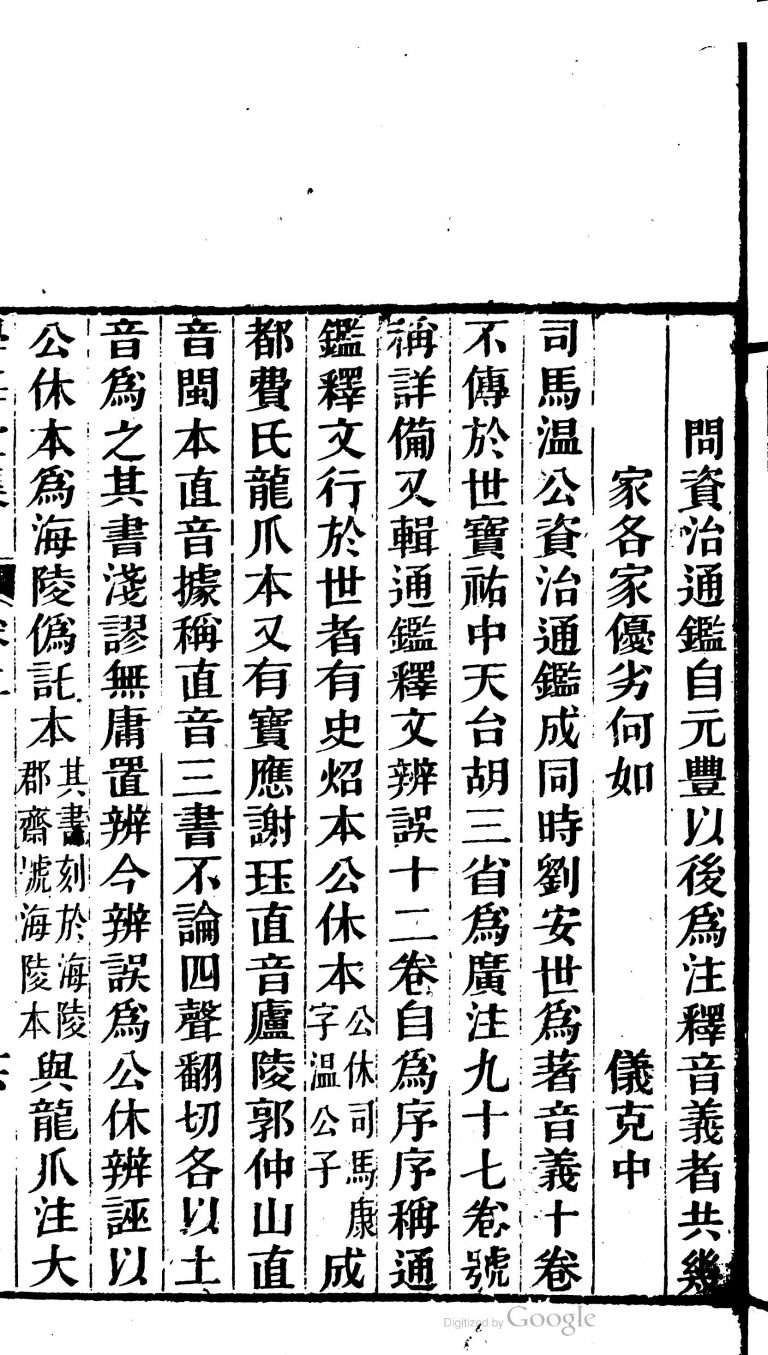 問資治通鑑自元豐以後爲注釋音義者共幾
家各家優劣何如　儀克中
司馬溫公資治通鑑成同時劉安世爲著音義十卷
不傳於世寶祐中天台胡三省爲廣注九十七卷號
稱詳備又輯通鑑釋文辨誤十二卷自爲序序稱通
鑑釋文行於世者有史炤本公休本公休司馬康字溫公子成
都費氏龍爪本又有寶應謝珏直音廬陵郭仲山直
音閩本直音據稱直音三書不論四聲翻切各以土
音爲之其書淺謬無庸置辨今辨誤爲公休辨誣以
公休本爲海陵僞託本其書刻於海陵郡齋號海陵本與龍爪注大
Digitized by Google